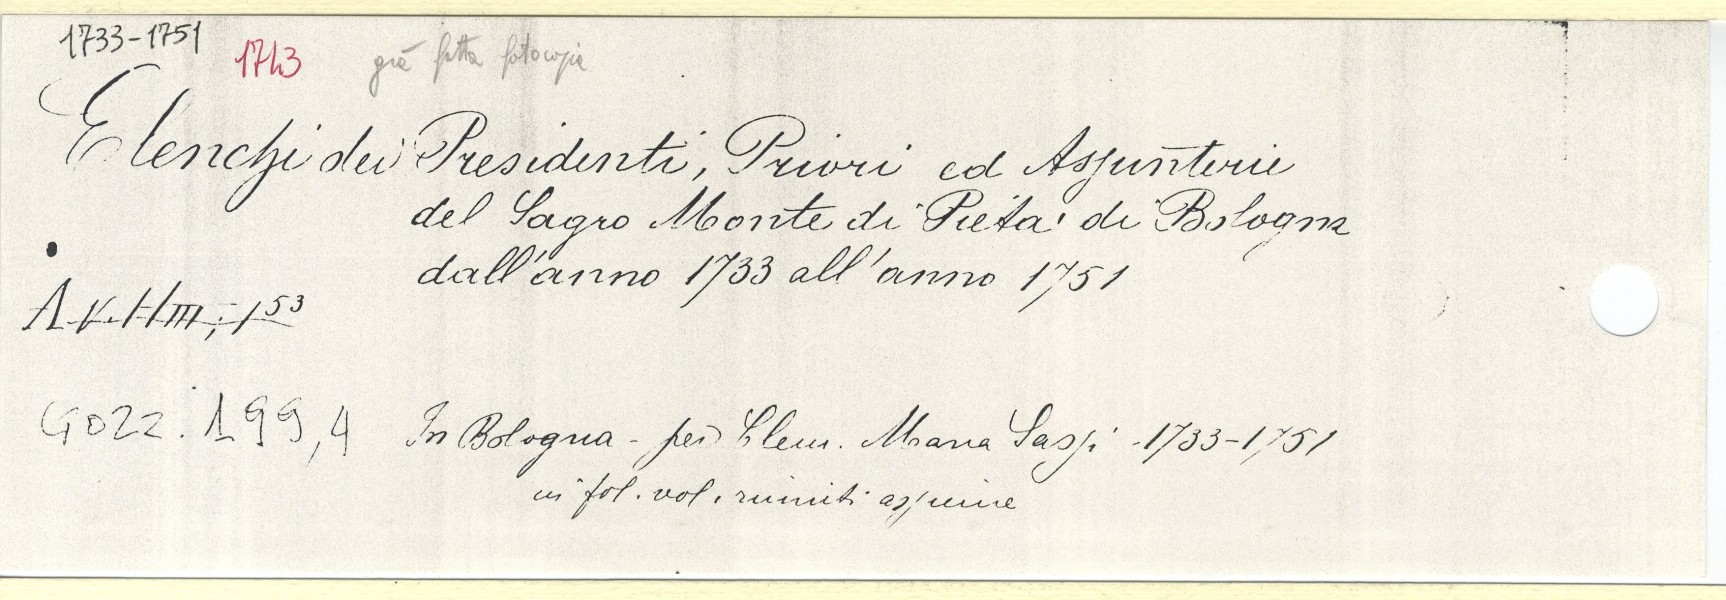 1733-1751 1743 già fatta fotocopia
Elenchi dei Presidenti, Priori ed Assunterie
del Sagro Monte di Pietà di Bologna
dall'anno 1733 all'anno 1751
A.V.H.III, 1 53
GOZZ. 199,4 In Bologna - per Clem. Maria Sassi - 1733-1751
in fol. vol. riuniti assieme